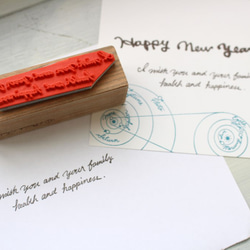 Happy New Year
I wish you and your family
health and happiness.
wish you and your family
health and happiness.